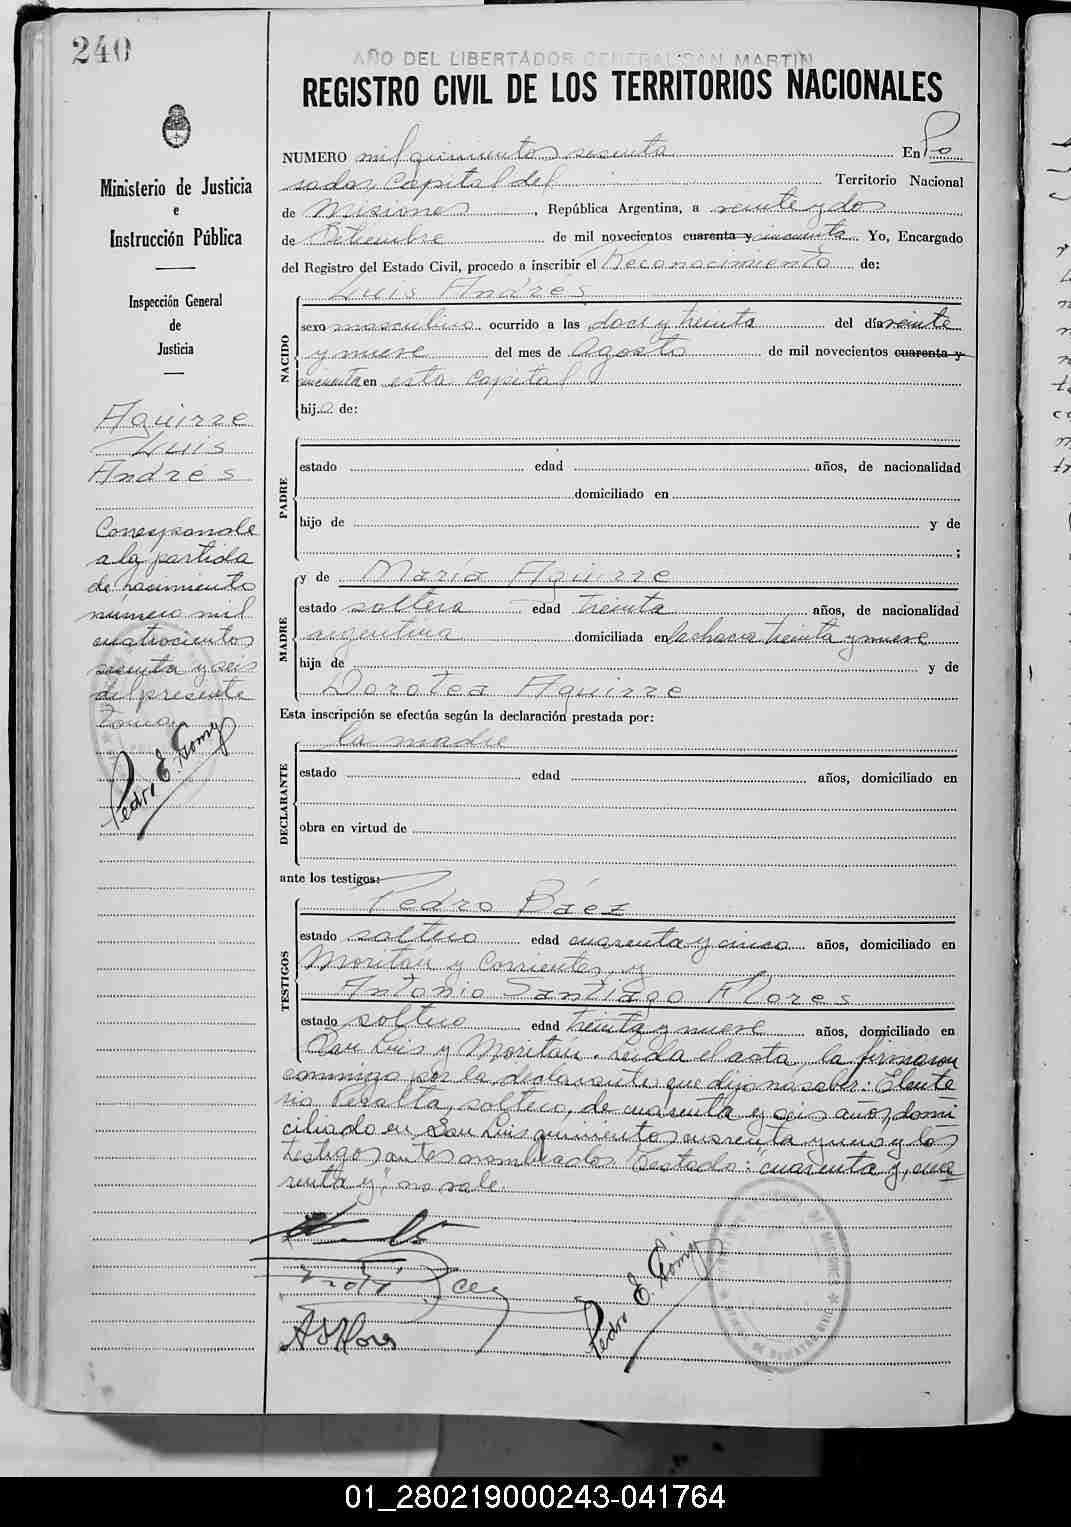 240
AÑO DEL LIBERTADOR GENERAL SAN MARTIN
REGISTRO CIVIL DE LOS TERRITORIOS NACIONALES
Ministerio de Justicia
e
Instrucción Pública
Inspección General
de
Justicia
Aguirre
Luis
Andrés
Corresponde
a la partida
de nacimiento
número mil
cuatrocientos
sesenta y seis
del presente
tomo
Pedro E. Gomez
NUMERO mil quinientos sesenta En Po
sadas Capital del Territorio Nacional
de Misiones, República Argentina, a veinte y dos
de Setiembre de mil novecientos cuarenta y cincuenta. Yo, Encargado
del Registro del Estado Civil, procedo a inscribir el Reconocimiento de:
Luis Andrés
NACIDO
sexo masculino ocurrido a las doce y treinta del día veinte
y nueve del mes de Agosto de mil novecientos cuarenta y
cincuenta en esta Capital
hijo de:
PADRE
estado edad años, de nacionalidad
domiciliado en
hijo de y de
;
MADRE
y de María Aguirre
estado soltera edad treinta años, de nacionalidad
argentina domiciliada en la chacra treinta y nueve
hija de y de
Dorotea Aguirre
Esta inscripción se efectúa según la declaración prestada por:
la madre
DECLARANTE
estado edad años, domiciliado en
obra en virtud de
ante los testigos:
TESTIGOS
Pedro Báez
estado soltero edad cuarenta y cinco años, domiciliado en
Moritán y Corrientes, y
Antonio Santiago Flores
estado soltero edad treinta y nueve años, domiciliado en
San Luis y Moritán. Leída el acta, la firmaron
conmigo por la declarante que dijo no saber: Eleute
rio Peralta, soltero, de cuarenta y seis años, domi
ciliado en San Luis quinientos cuarenta y uno y los
testigos antes nombrados. Testado: "cuarenta y, cua
renta y", no vale.
Báez
A S Flores
Pedro E. Gomez
01_280219000243-041764